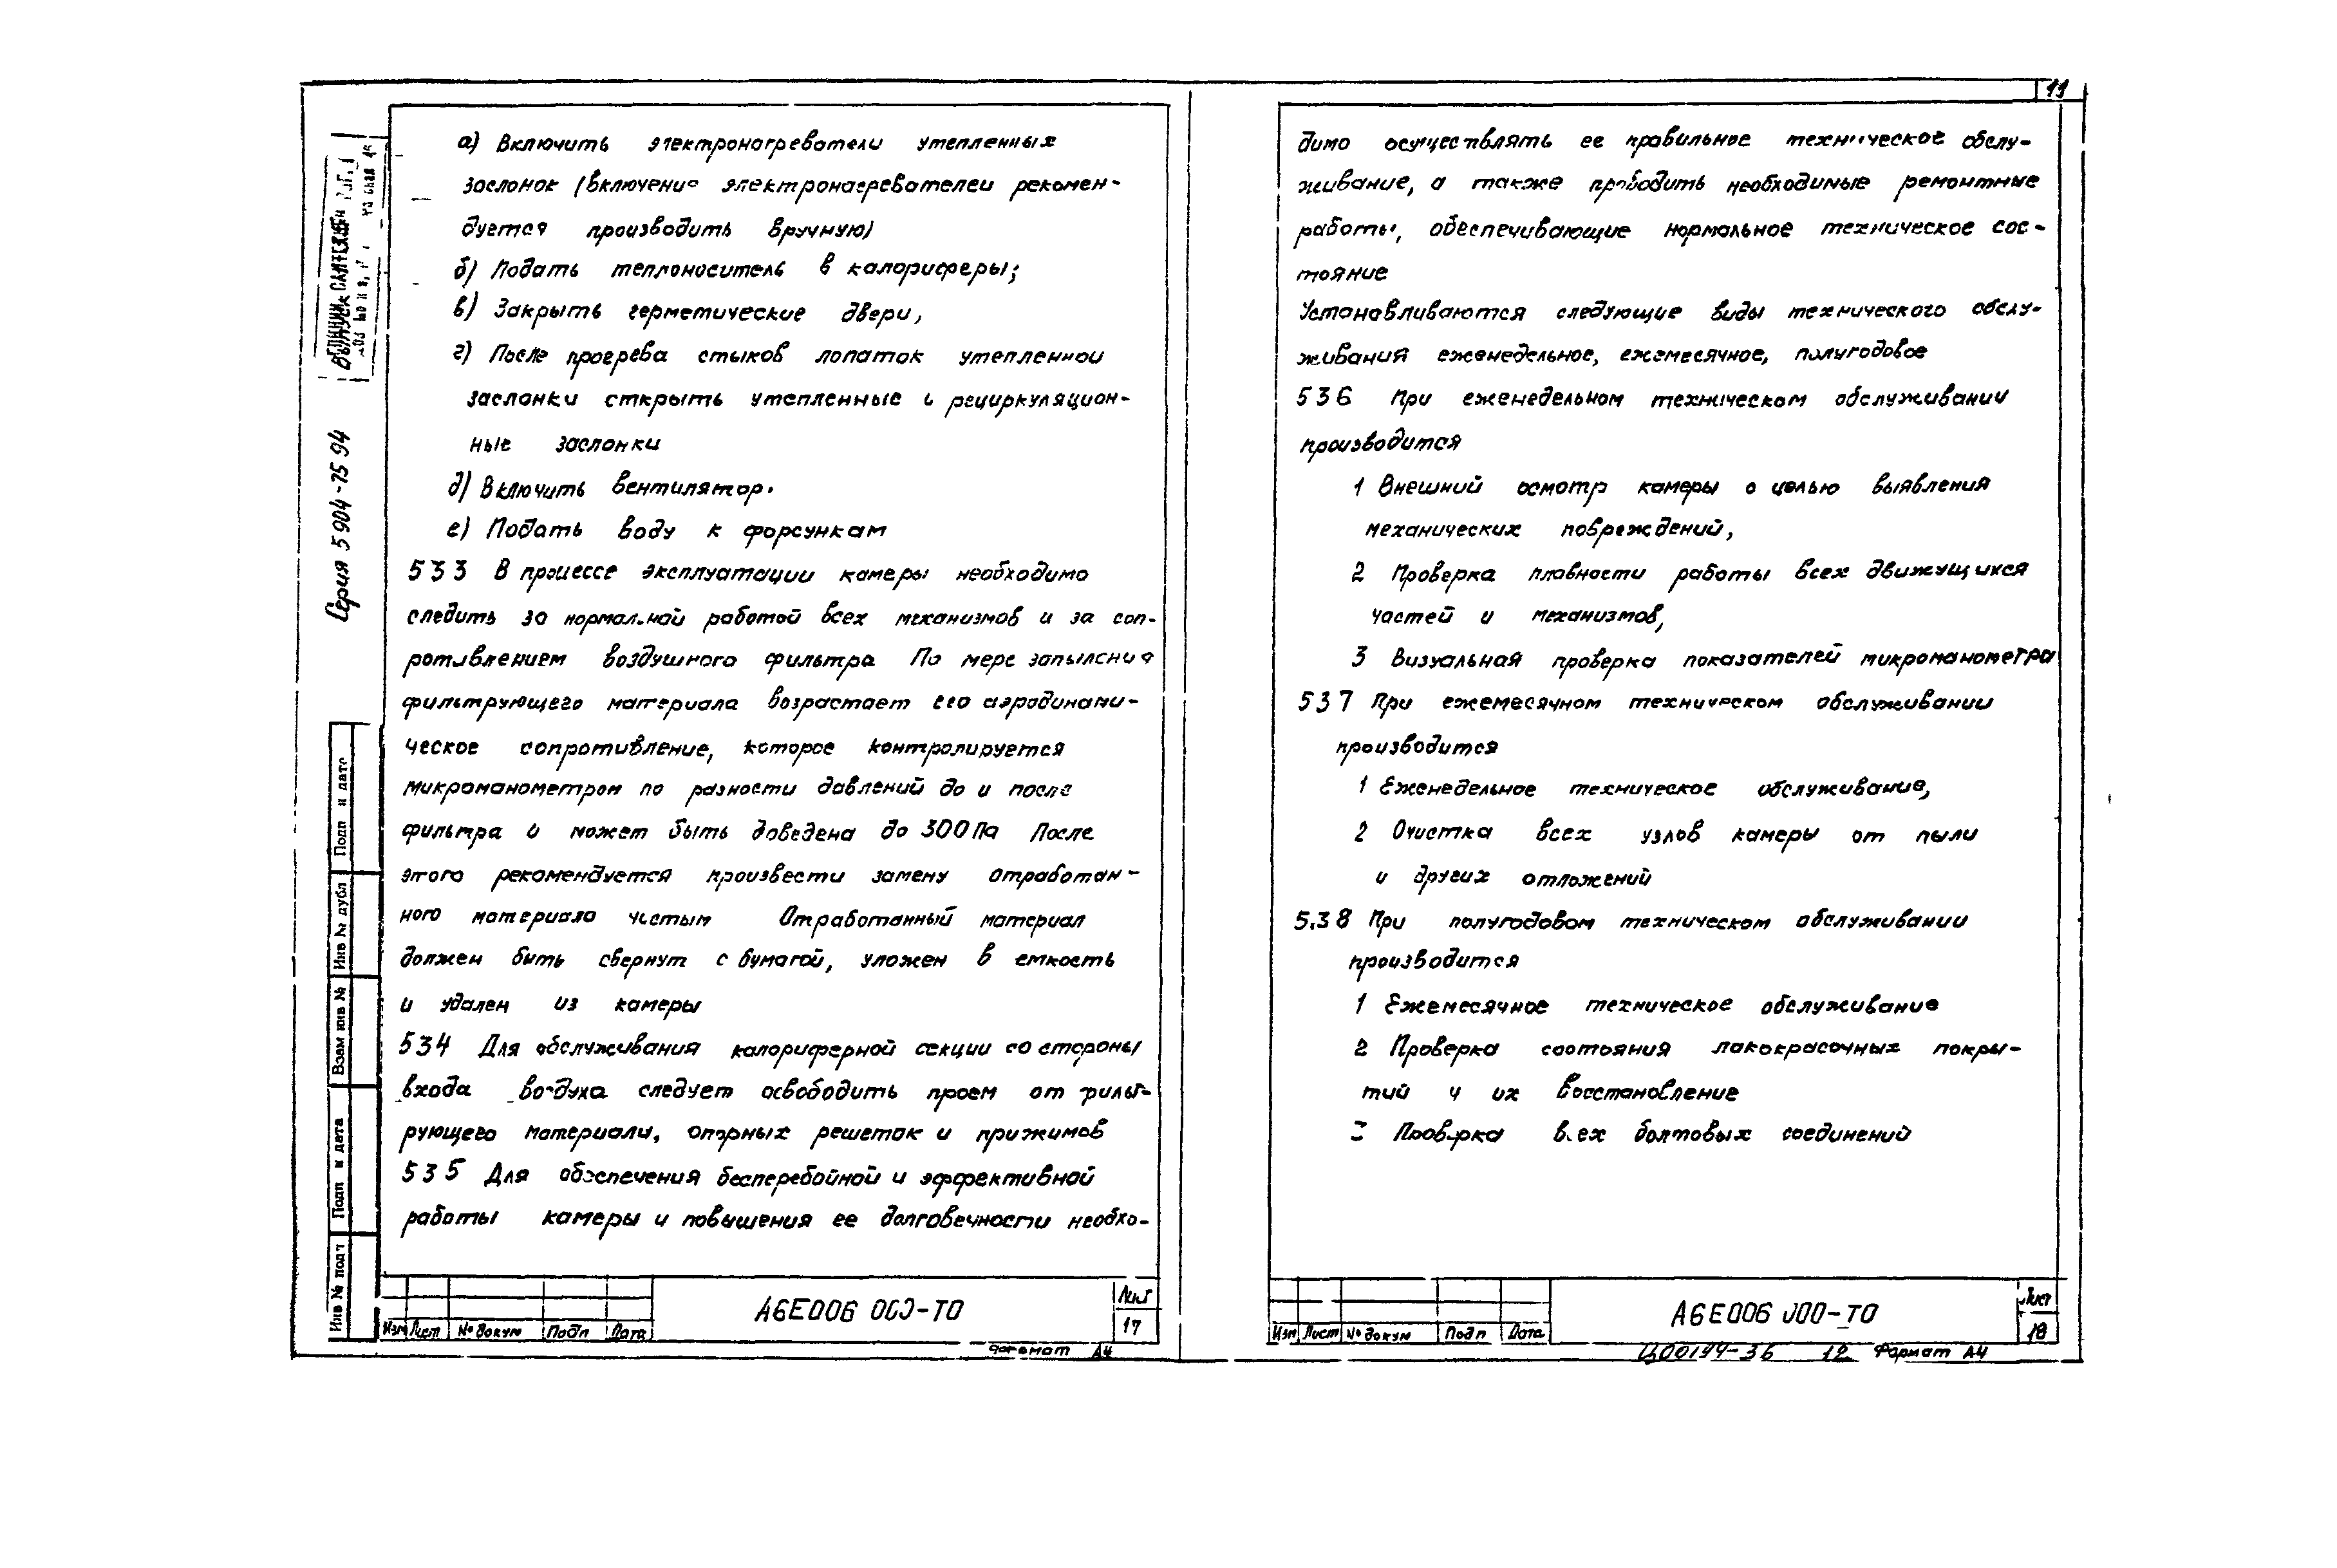 11
а) Включить электронагреватели утепленных
заслонок (включение электронагревателей рекомен-
дуется производить вручную)
б) Подать теплоноситель в калориферы;
в) Закрыть герметические двери,
г) После прогрева стыков лопаток утепленной
заслонки открыть утепленные и рециркуляцион-
ные заслонки
д) Включить вентилятор.
е) Подать воду к форсункам
533 В процессе эксплуатации камеры необходимо
следить за нормальной работой всех механизмов и за соп-
ротивлением воздушного фильтра По мере запыления
фильтрующего материала возрастает его аэродинами-
ческое сопротивление, которое контролируется
микроманометром по разности давлений до и после
фильтра и может быть доведена до 300 Па После
этого рекомендуется произвести замену отработан-
ного материала чистым Отработанный материал
должен быть свернут с бумагой, уложен в емкость
и удален из камеры
534 Для обслуживания калориферной секции со стороны
входа воздуха следует освободить проем от фильт-
рующего материала, опорных решеток и прижимов
535 Для обеспечения бесперебойной и эффективной
работы камеры и повышения ее долговечности необхо-
А6Е006 000-ТО
Лист
17
Изм Лист № докум Подп Дата
Формат А4
димо осуществлять ее правильное техническое обслу-
живание, а также проводить необходимые ремонтные
работы, обеспечивающие нормальное техническое сос-
тояние
Устанавливаются следующие виды технического обслу-
живания еженедельное, ежемесячное, полугодовое
536 При еженедельном техническом обслуживании
производится
1 Внешний осмотр камеры с целью выявления
механических повреждений,
2 Проверка плавности работы всех движущихся
частей и механизмов,
3 Визуальная проверка показателей микроманометра
537 При ежемесячном техническом обслуживании
производится
1 Еженедельное техническое обслуживание,
2 Очистка всех узлов камеры от пыли
и других отложений
5.38 При полугодовом техническом обслуживании
производится
1 Ежемесячное техническое обслуживание
2 Проверка состояния лакокрасочных покры-
тий и их восстановление
3 Проверка всех болтовых соединений
А6Е006 000-ТО
Лист
18
Изм Лист № докум Подп Дата
Ц00194-36 12 Формат А4
Серия 5 904-75 94
Подп и дата
Инв № дубл
Взам инв №
Подп и дата
Инв № подл